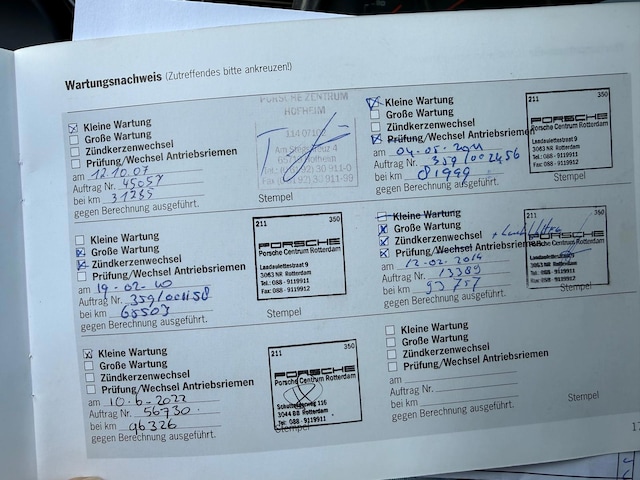 Wartungsnachweis (Zutreffendes bitte ankreuzen!)
Kleine Wartung
Große Wartung
Zündkerzenwechsel
Prüfung/Wechsel Antriebsriemen
am 12.10.07
Auftrag Nr. 45057
bei km 31285
gegen Berechnung ausgeführt.
PORSCHE ZENTRUM
HOFHEIM
Stempel
Kleine Wartung
Große Wartung
Zündkerzenwechsel
Prüfung/Wechsel Antriebsriemen
am 04-05-2011
Auftrag Nr. 359/002456
bei km 81999
gegen Berechnung ausgeführt.
211 350
PORSCHE
Porsche Centrum Rotterdam
Landaulettestraat 9
3063 NR Rotterdam
Tel.: 088 - 9119911
Fax: 088 - 9119912
Stempel
Kleine Wartung
Große Wartung
Zündkerzenwechsel
Prüfung/Wechsel Antriebsriemen
am 19-02-10
Auftrag Nr. 359/001158
bei km 65503
gegen Berechnung ausgeführt.
211 350
PORSCHE
Porsche Centrum Rotterdam
Landaulettestraat 9
3063 NR Rotterdam
Tel.: 088 - 9119911
Fax: 088 - 9119912
Stempel
Kleine Wartung
Große Wartung
Zündkerzenwechsel
Prüfung/Wechsel Antriebsriemen
am 12-02-2014
Auftrag Nr. 13389
bei km 93757
gegen Berechnung ausgeführt.
211 350
PORSCHE
Porsche Centrum Rotterdam
Landaulettestraat 9
3063 NR Rotterdam
Tel.: 088 - 9119911
Fax: 088 - 9119912
Stempel
Kleine Wartung
Große Wartung
Zündkerzenwechsel
Prüfung/Wechsel Antriebsriemen
am 10-6-2022
Auftrag Nr. 56730
bei km 96326
gegen Berechnung ausgeführt.
211 350
PORSCHE
Porsche Centrum Rotterdam
116
3044 BB Rotterdam
Tel: 088 - 9119911
Stempel
Kleine Wartung
Große Wartung
Zündkerzenwechsel
Prüfung/Wechsel Antriebsriemen
am
Auftrag Nr.
bei km
gegen Berechnung ausgeführt.
Stempel